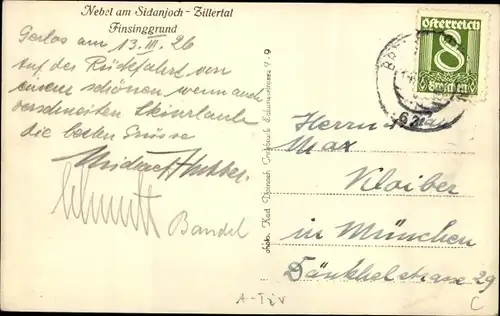 Nebel am Sidanjoch - Zillertal
Finsinggrund
Gerlos am 13. III. 26
Auf der Rückfahrt von
unserer schönen, wenn auch
verschneiten Skiurlaube
die besten Grüsse
Schmitt
Bandel
Österreich
8
Groschen
Herrn
Max
Kloiber
in München
Dänkhelstrasse 29
A-Tiv
C